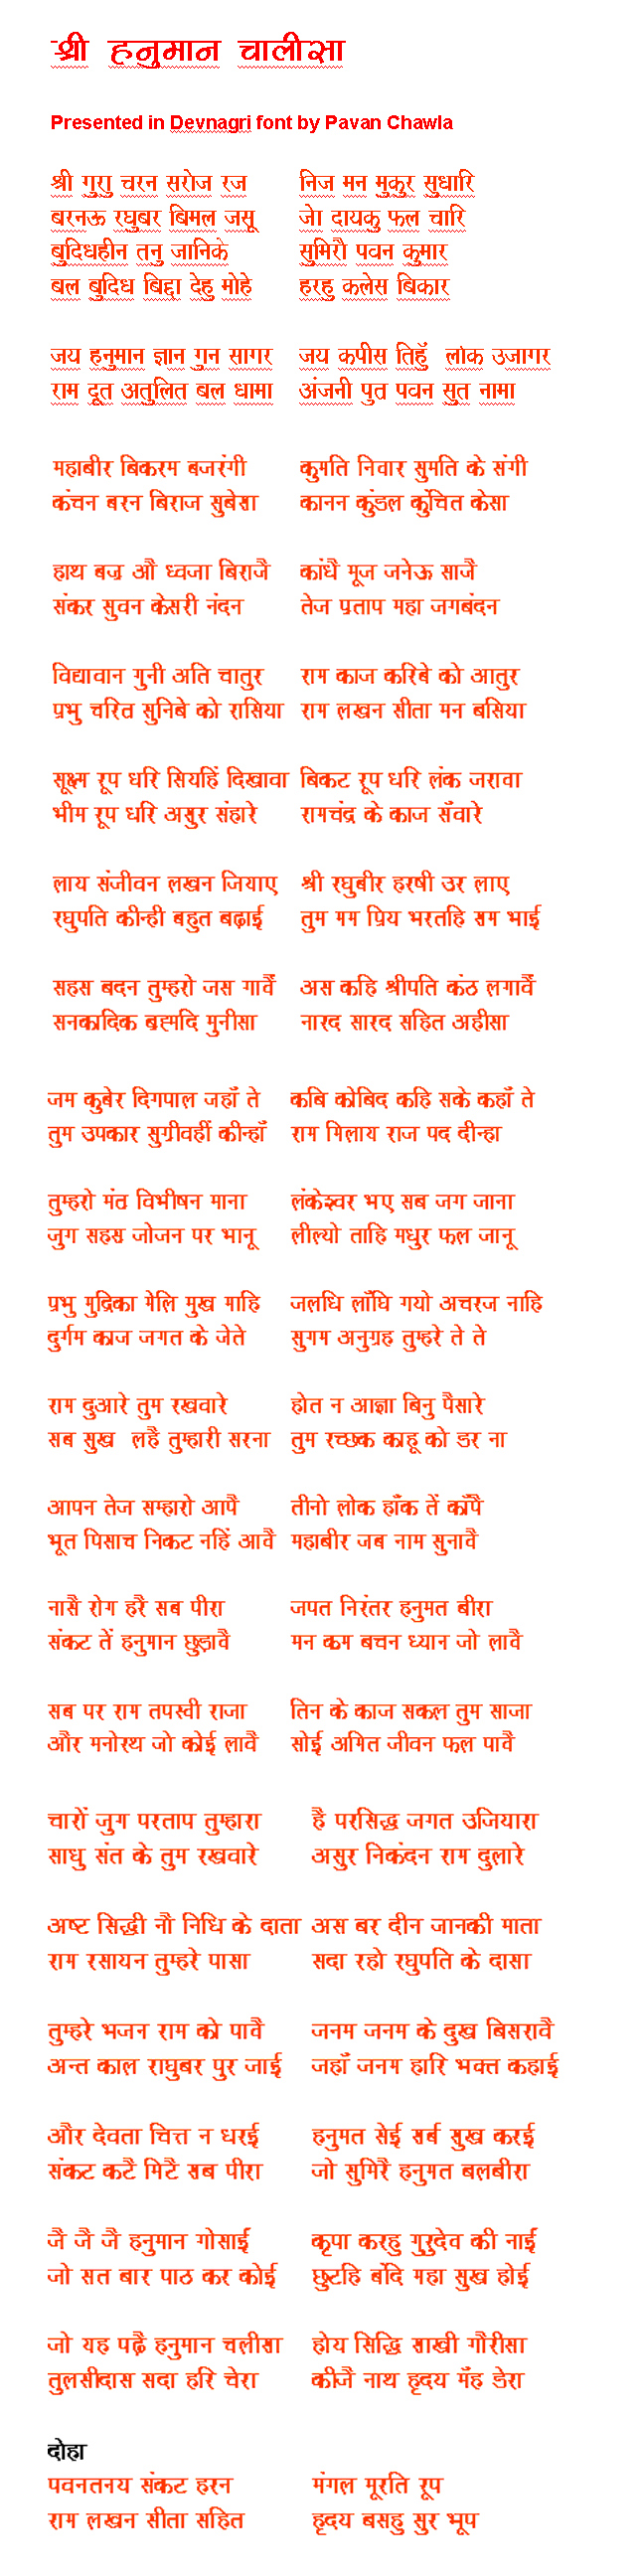 श्री हनुमान चालीसा
Presented in Devnagri font by Pavan Chawla
श्री गुरु चरन सरोज रज निज मन मुकुर सुधारि
बरनऊ रघुबर बिमल जसू जेा दायकु फल चारि
बुदिधहीन तनु जानिके सुमिरौ पवन कुमार
बल बुदिध बिद्दा देहु मोहे हरहु कलेस बिकार
जय हनुमान ज्ञान गुन सागर जय कपीस तिहुँ लोक उजागर
राम दूत अतुलित बल धामा अंजनी पुत पवन सुत नामा
महाबीर बिकरम बजरंगी कुमति निवार सुमति के संगी
कंचन बरन बिराज सुबेसा कानन कुंडल कुंचित केसा
हाथ बज्र औ ध्वजा बिराजै कांधै मूज जनेऊ साजै
संकर सुवन केसरी नंदन तेज प्रताप महा जगबंदन
विद्यावान गुनी अति चातुर राम काज करिबे को आतुर
प्रभु चरित्र सुनिबे को रासिया राम लखन सीता मन बसिया
सूक्ष्म रूप धरि सियहिं दिखावा बिकट रूप धरि लंक जरावा
भीम रूप धरि असुर संहारे रामचंद्र के काज सँवारे
लाय संजीवन लखन जियाए श्री रघुबीर हरषी उर लाए
रघुपति कीन्ही बहुत बढ़ाई तुम मम प्रिय भरतहि सम भाई
सहस बदन तुम्हरो जस गावैं अस कहि श्रीपति कंठ लगावैं
सनकादिक बह्मदि मुनीसा नारद सारद सहित अहीसा
जम कुबेर दिगपाल जहाँ ते कबि कोबिद कहि सके कहाँ ते
तुम उपकार सुग्रीवहीं कीन्हाँ राम मिलाय राज पद दीन्हा
तुम्हरो मंत्र विभीषन माना लंकेश्वर भए सब जग जाना
जुग सहस जोजन पर भानू लील्यो ताहि मधुर फल जानू
प्रभु मुद्रिका मेलि मुख माहि जलधि लाँघि गयो अचरज नाहि
दुर्गम काज जगत के जेते सुगम अनुग्रह तुम्हरे ते ते
राम दुआरे तुम रखवारे होत न आज्ञा बिनु पैसारे
सब सुख लहै तुम्हारी सरना तुम रच्छक काहू को डर ना
आपन तेज सम्हारो आपै तीनो लोक हाँक तें काँपै
भूत पिसाच निकट नहिं आवै महाबीर जब नाम सुनावै
नासै रोग हरै सब पीरा जपत निरंतर हनुमत बीरा
संकट तें हनुमान छुड़ावै मन कम बचन ध्यान जो लावै
सब पर राम तपस्वी राजा तिन के काज सकल तुम साजा
और मनोरथ जो कोई लावै सोई अमित जीवन फल पावै
चारों जुग परताप तुम्हारा है परसिद्ध जगत उजियारा
साधु संत के तुम रखवारे असुर निकंदन राम दुलारे
अष्ट सिद्धी नौ निधि के दाता अस बर दीन जानकी माता
राम रसायन तुम्हरे पासा सदा रहो रघुपति के दासा
तुम्हरे भजन राम को पावै जनम जनम के दुख बिसरावै
अन्त काल राघुबर पुर जाई जहाँ जनम हारि भक्त कहाई
और देवता चित्त न धरई हनुमत सेई सर्ब सुख करई
संकट कटै मिटै सब पीरा जो सुमिरै हनुमत बलबीरा
जै जै जै हनुमान गोसाईं कृपा करहु गुरुदेव की नाईं
जो सत बार पाठ कर कोई छुटहि बंदि महा सुख होई
जो यह पढ़ै हनुमान चलीसा होय सिद्धि साखी गौरीसा
तुलसीदास सदा हरि चेरा कीजै नाथ हृदय मँह डेरा
दोहा
पवनतनय संकट हरन मंगल मूरति रूप
राम लखन सीता सहित हृदय बसहु सुर भूप